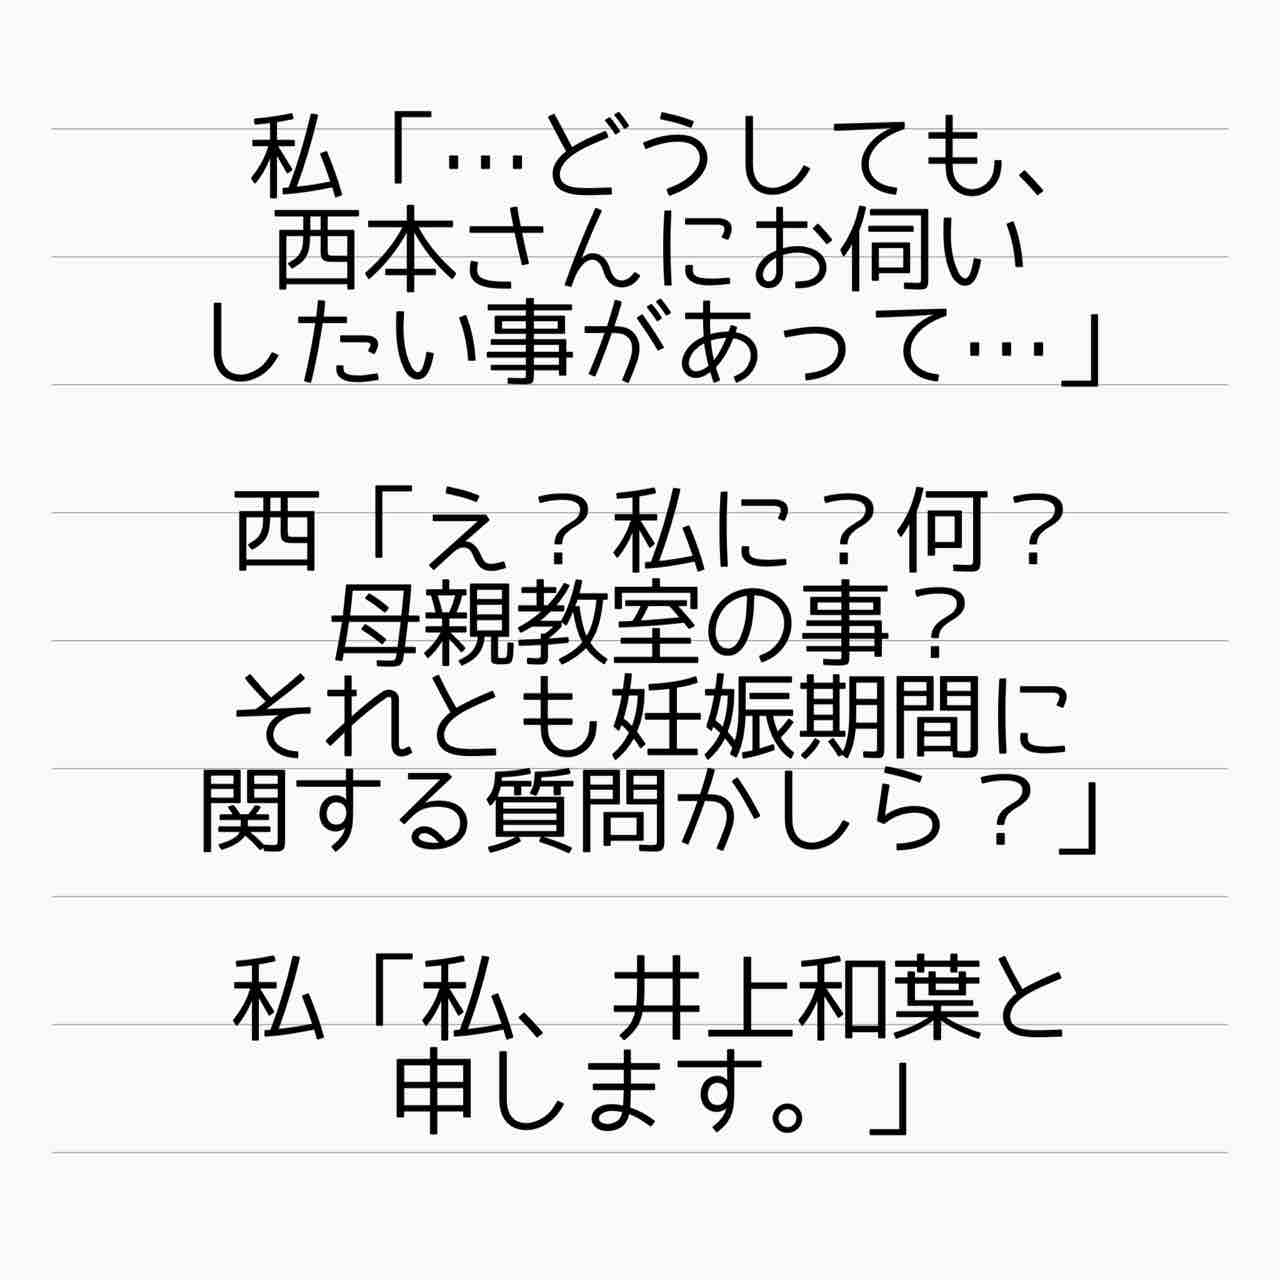 私「…どうしても、
西本さんにお伺い
したい事があって…」
西「え？私に？何？
母親教室の事？
それとも妊娠期間に
関する質問かしら？」
私「私、井上和葉と
申します。」